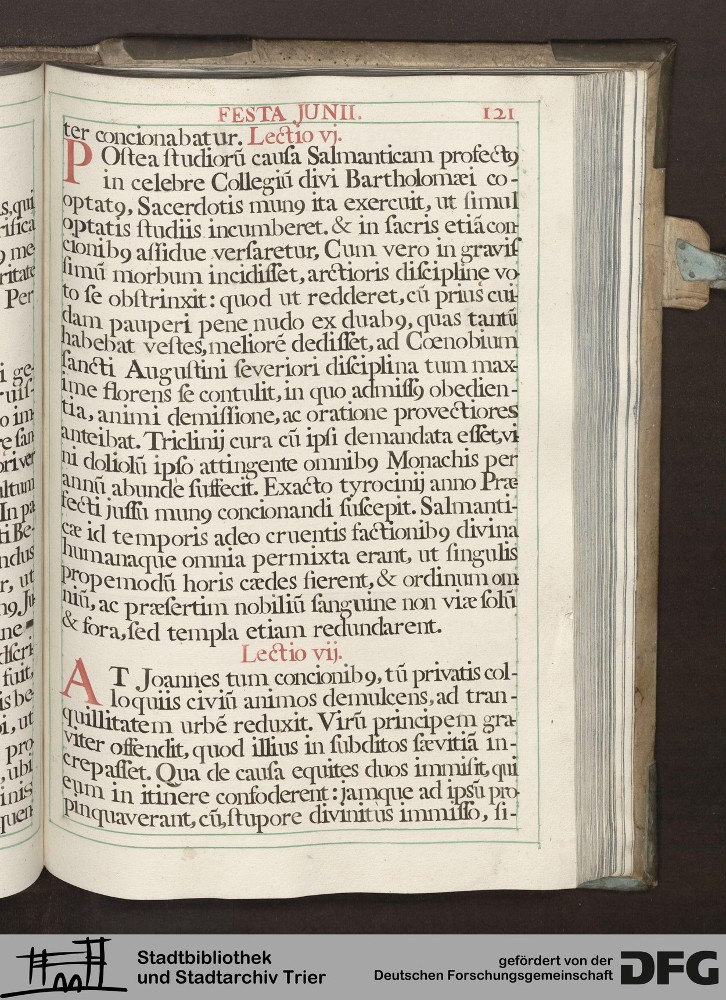 FESTA JUNII. 121
ter concionabatur. Lectio vj.
POſtea ſtudiorū cauſa Salmanticam profectꝰ
in celebre Collegiū divi Bartholomæi co-
optatꝰ, Sacerdotis munꝰ ita exercuit, ut ſimul
optatis ſtudiis incumberet. & in ſacris etiā con
cionibꝰ aſſidue verſaretur, Cum vero in graviſ
ſimū morbum incidiſſet, arctioris diſcipline vo
to ſe obſtrinxit: quod ut redderet, cū prius cui
dam pauperi pene nudo ex duabꝰ, quas tantū
habebat veſtes, meliorē dediſſet, ad Cœnobium
ſancti Auguſtini ſeveriori diſciplina tum max
ime florens ſe contulit, in quo admiſſꝰ obedien-
tia, animi demiſſione, ac oratione provectiores
anteibat. Triclinij cura cū ipſi demandata eſſet, vi
ni doliolū ipſo attingente omnibꝰ Monachis per
annū abunde ſuffecit. Exacto tyrocinij anno Præ
fecti juſſu munꝰ concionandi ſuſcepit. Salmanti-
cæ id temporis adeo cruentis factionibꝰ divina
humanaque omnia permixta erant, ut ſingulis
propemodū horis cædes fierent, & ordinum om
niū, ac præſertim nobiliū ſanguine non viæ ſolū
& fora, ſed templa etiam redundarent.
Lectio vij.
AT Joannes tum concionibꝰ, tū privatis col-
loquiis civiū animos demulcens, ad tran-
quillitatem urbē reduxit. Virū principem gra
viter offendit, quod illius in ſubditos ſævitiā in-
crepaſſet. Qua de cauſa equites duos immiſit, qui
eum in itinere confoderent: jamque ad ipſū pro
pinquaverant, cū, ſtupore divinitus immiſſo, ſi-
Stadtbibliothek
und Stadtarchiv Trier
gefördert von der
Deutschen Forschungsgemeinschaft DFG